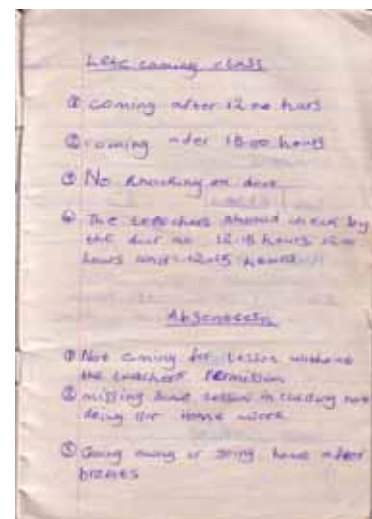 Late coming class
① coming after 12 00 hours
② coming after 18 00 hours
③ No knocking on door
④ The teachers should check by
the door at 12.15 hours
hours and 12.15 hours
Absenteeism
① Not coming for lesson without
the teachers permission
② missing some lesson including not
doing home work
③ Going away or going home after
breaks